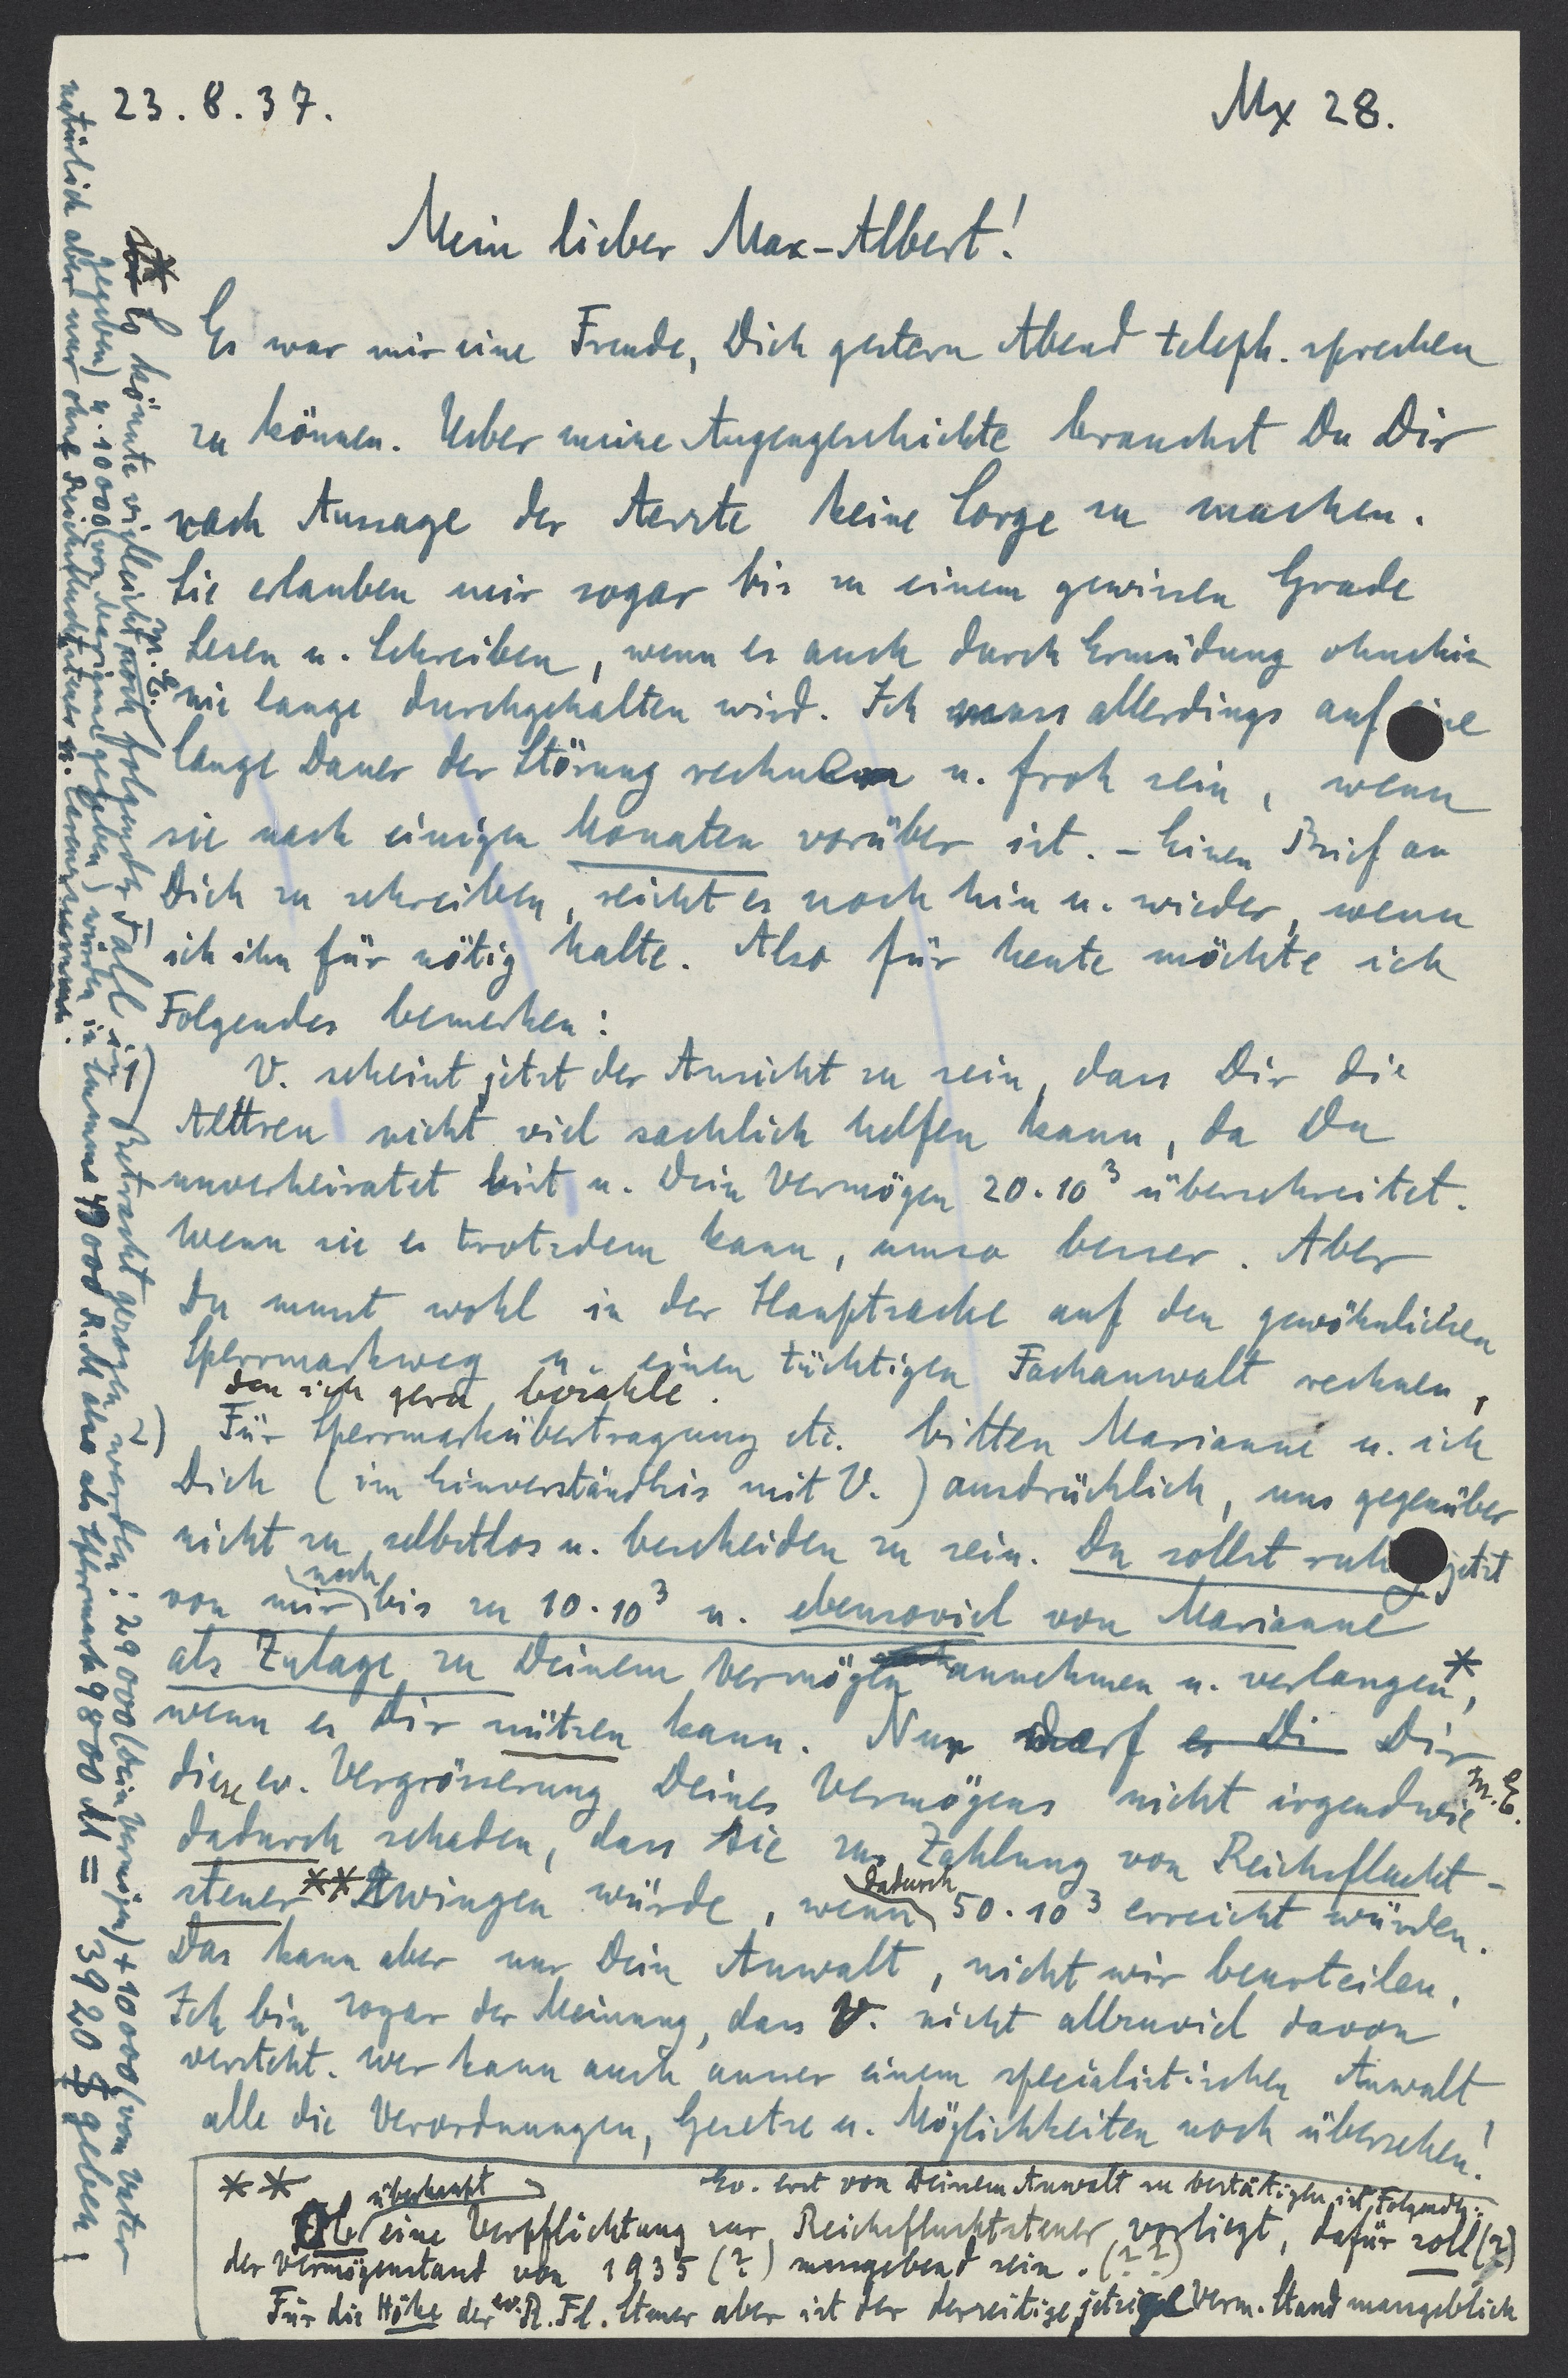 23.8.37.
Mx 28.
Mein lieber Max-Albert!
Es war mir eine Freude, Dich gestern Abend teleph. sprechen
zu können. Ueber meine Augengeschichte brauchst Du Dir
nach Aussage der Aerzte keine Sorge zu machen.
Sie erlauben mir sogar bis zu einem gewissen Grade
Lesen u. Schreiben, wenn es auch durch Ermüdung ohnehin
nie lange durchgehalten wird. Ich muss allerdings auf eine
lange Dauer der Störung rechnen u. froh sein, wenn
sie nach einigen Monaten vorüber ist. – Einen Brief an
Dich zu schreiben, reicht es noch hin u. wieder, wenn
ich ihn für nötig halte. Also für heute möchte ich
Folgendes bemerken:
V. scheint jetzt der Ansicht zu sein, dass Dir die
Altreu nicht viel sachlich helfen kann, da Du
unverheiratet bist u. Dein Vermögen 20·10³ überschreitet.
Wenn sie es trotzdem kann, umso besser. Aber
Du musst wohl in der Hauptsache auf den gewöhnlichen
Sperrmarkweg u. einen tüchtigen Fachanwalt rechnen,
den ich gern bezahle.
Für Sperrmarkübertragung etc. bitten Marianne u. ich
Dich (im Einverständnis mit V.) ausdrücklich, uns gegenüber
nicht zu selbstlos u. bescheiden zu sein. Du sollst ruhig jetzt
von mir noch bis zu 10·10³ u. ebensoviel von Marianne
als Zulage zu Deinem Vermögen annehmen u. verlangen*,
wenn es Dir nützen kann. Nur darf es Di Dir
diese ev. Vergrösserung Deines Vermögens nicht irgendwie m.E.
dadurch schaden, dass sie zur Zahlung von Reichsflucht-
steuer** zwingen würde, wenn dadurch 50·10³ erreicht würden.
Das kann aber nur Dein Anwalt, nicht wir beurteilen.
Ich bin sogar der Meinung, dass V. nicht allzuviel davon
versteht. Wer kann auch ausser einem specialistischen Anwalt
alle die Verordnungen, Gesetze u. Möglichkeiten noch übersehen!
** Ev. erst von Deinem Anwalt zu bestätigen ist Folgendes:
Ob überhaupt eine Verpflichtung zur Reichsfluchtsteuer vorliegt, dafür soll (?)
der Vermögenstand von 1935 (?) massgebend sein. (??)
Für die Höhe der ev. R.Fl. Steuer aber ist der derzeitige jetzige Verm. Stand massgeblich
* Es könnte vielleicht noch m.E. folgender Fall in Betracht gezogen werden: 1) 2) 29000 (Dein Vermögen) + 10000 (vom Vater
gegeben) u. 10000 (von Marianne gegeben) würden in Summe 49000 R.M also als Sperrmark 9800 M = 3920 $ geben!
natürlich aber nur ohne Reichsfluchtsteuer u.